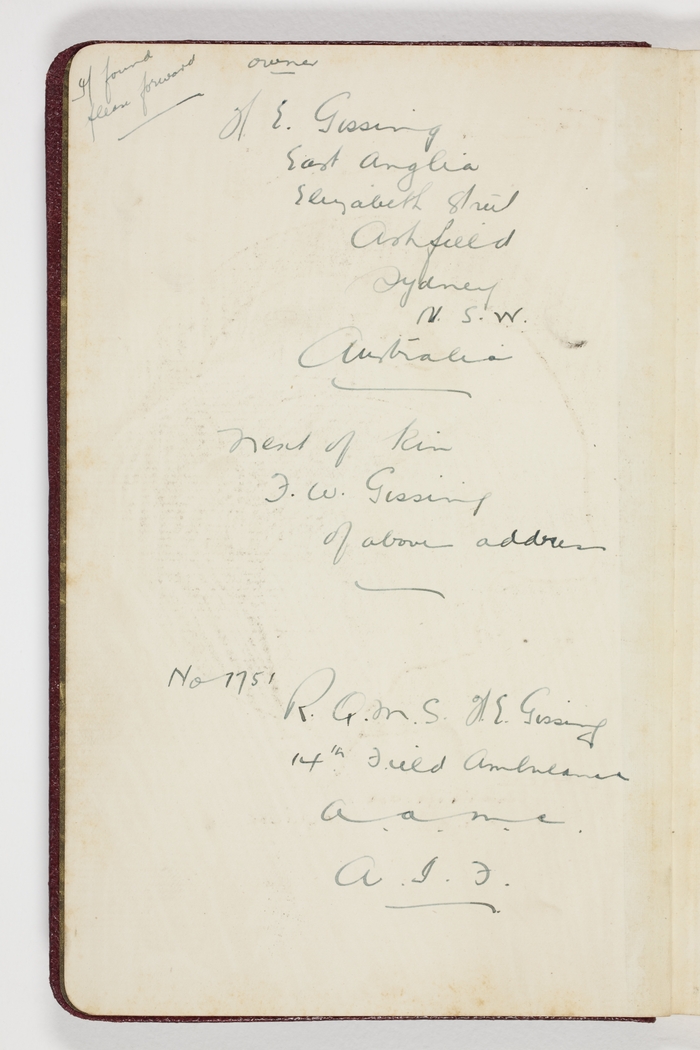 If found
please forward
owner
H E. Gissing
East Anglia
Elizabeth Street
Ashfield
Sydney
N. S. W.
Australia
Next of Kin
F. W. Gissing
of above address
No 1751
R. Q. M. S. H. E. Gissing
14th Field Ambulance
A. A. M. C.
A. I. F.